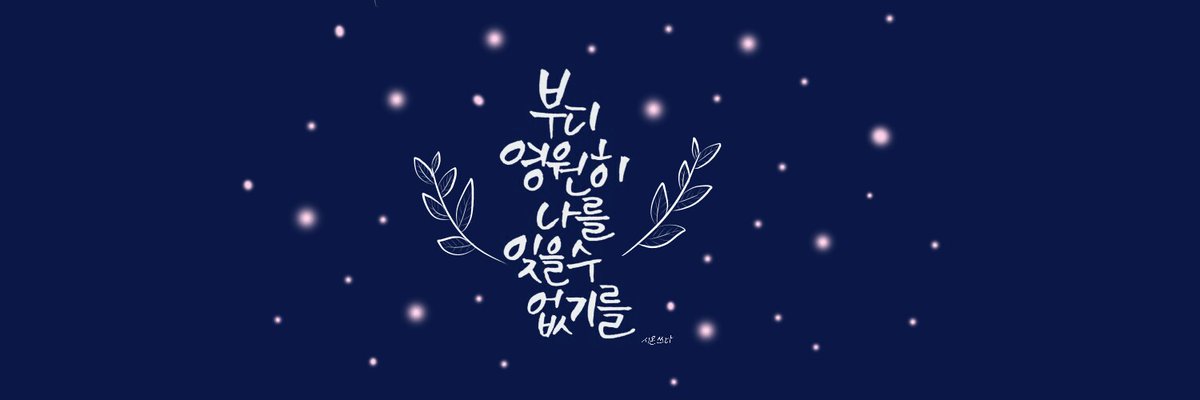 부디
영원히
나를
잊을 수
없기를
시온쓰다